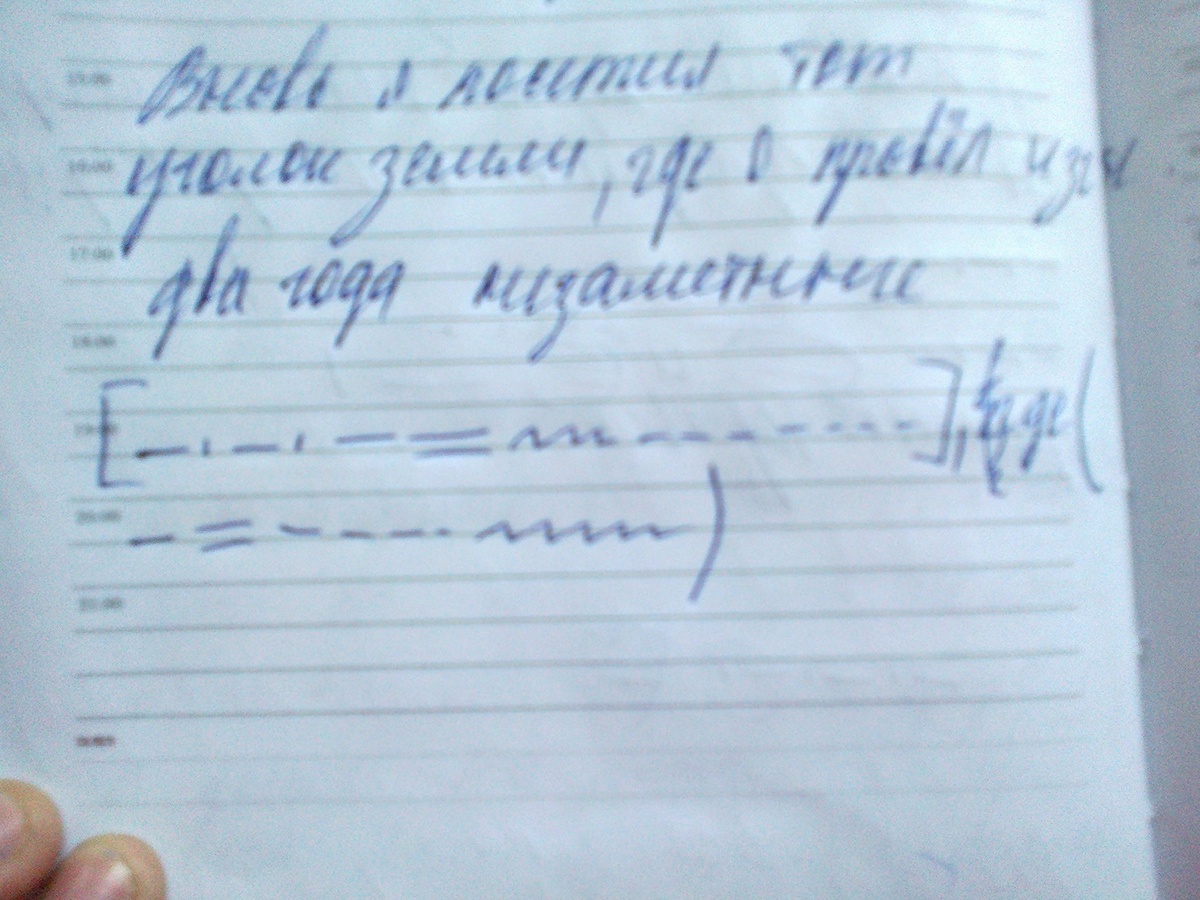 15:00 Вновь я посетил тот
16:00 уголок земли, где я провёл изгн
17:00 два года незаметные
18:00
19:00 [ ], где (
20:00 )
21:00